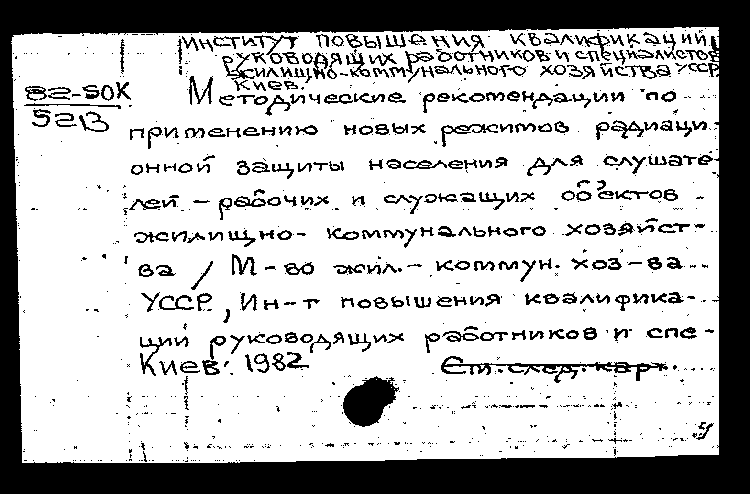 Институт повышения квалификации
руководящих работников и специалистов
жилищно-коммунального хозяйства УССР
Киев.
82-50К
5213
Методические рекомендации по
применению новых режимов радиаци-
онной защиты населения для слушате-
лей - рабочих и служащих объектов
жилищно- коммунального хозяйст-
ва / М-во жил.- коммун. хоз-ва
УССР, Ин-т повышения квалифика-
ции руководящих работников и спе-
Киев. 1982 См. след. карт.